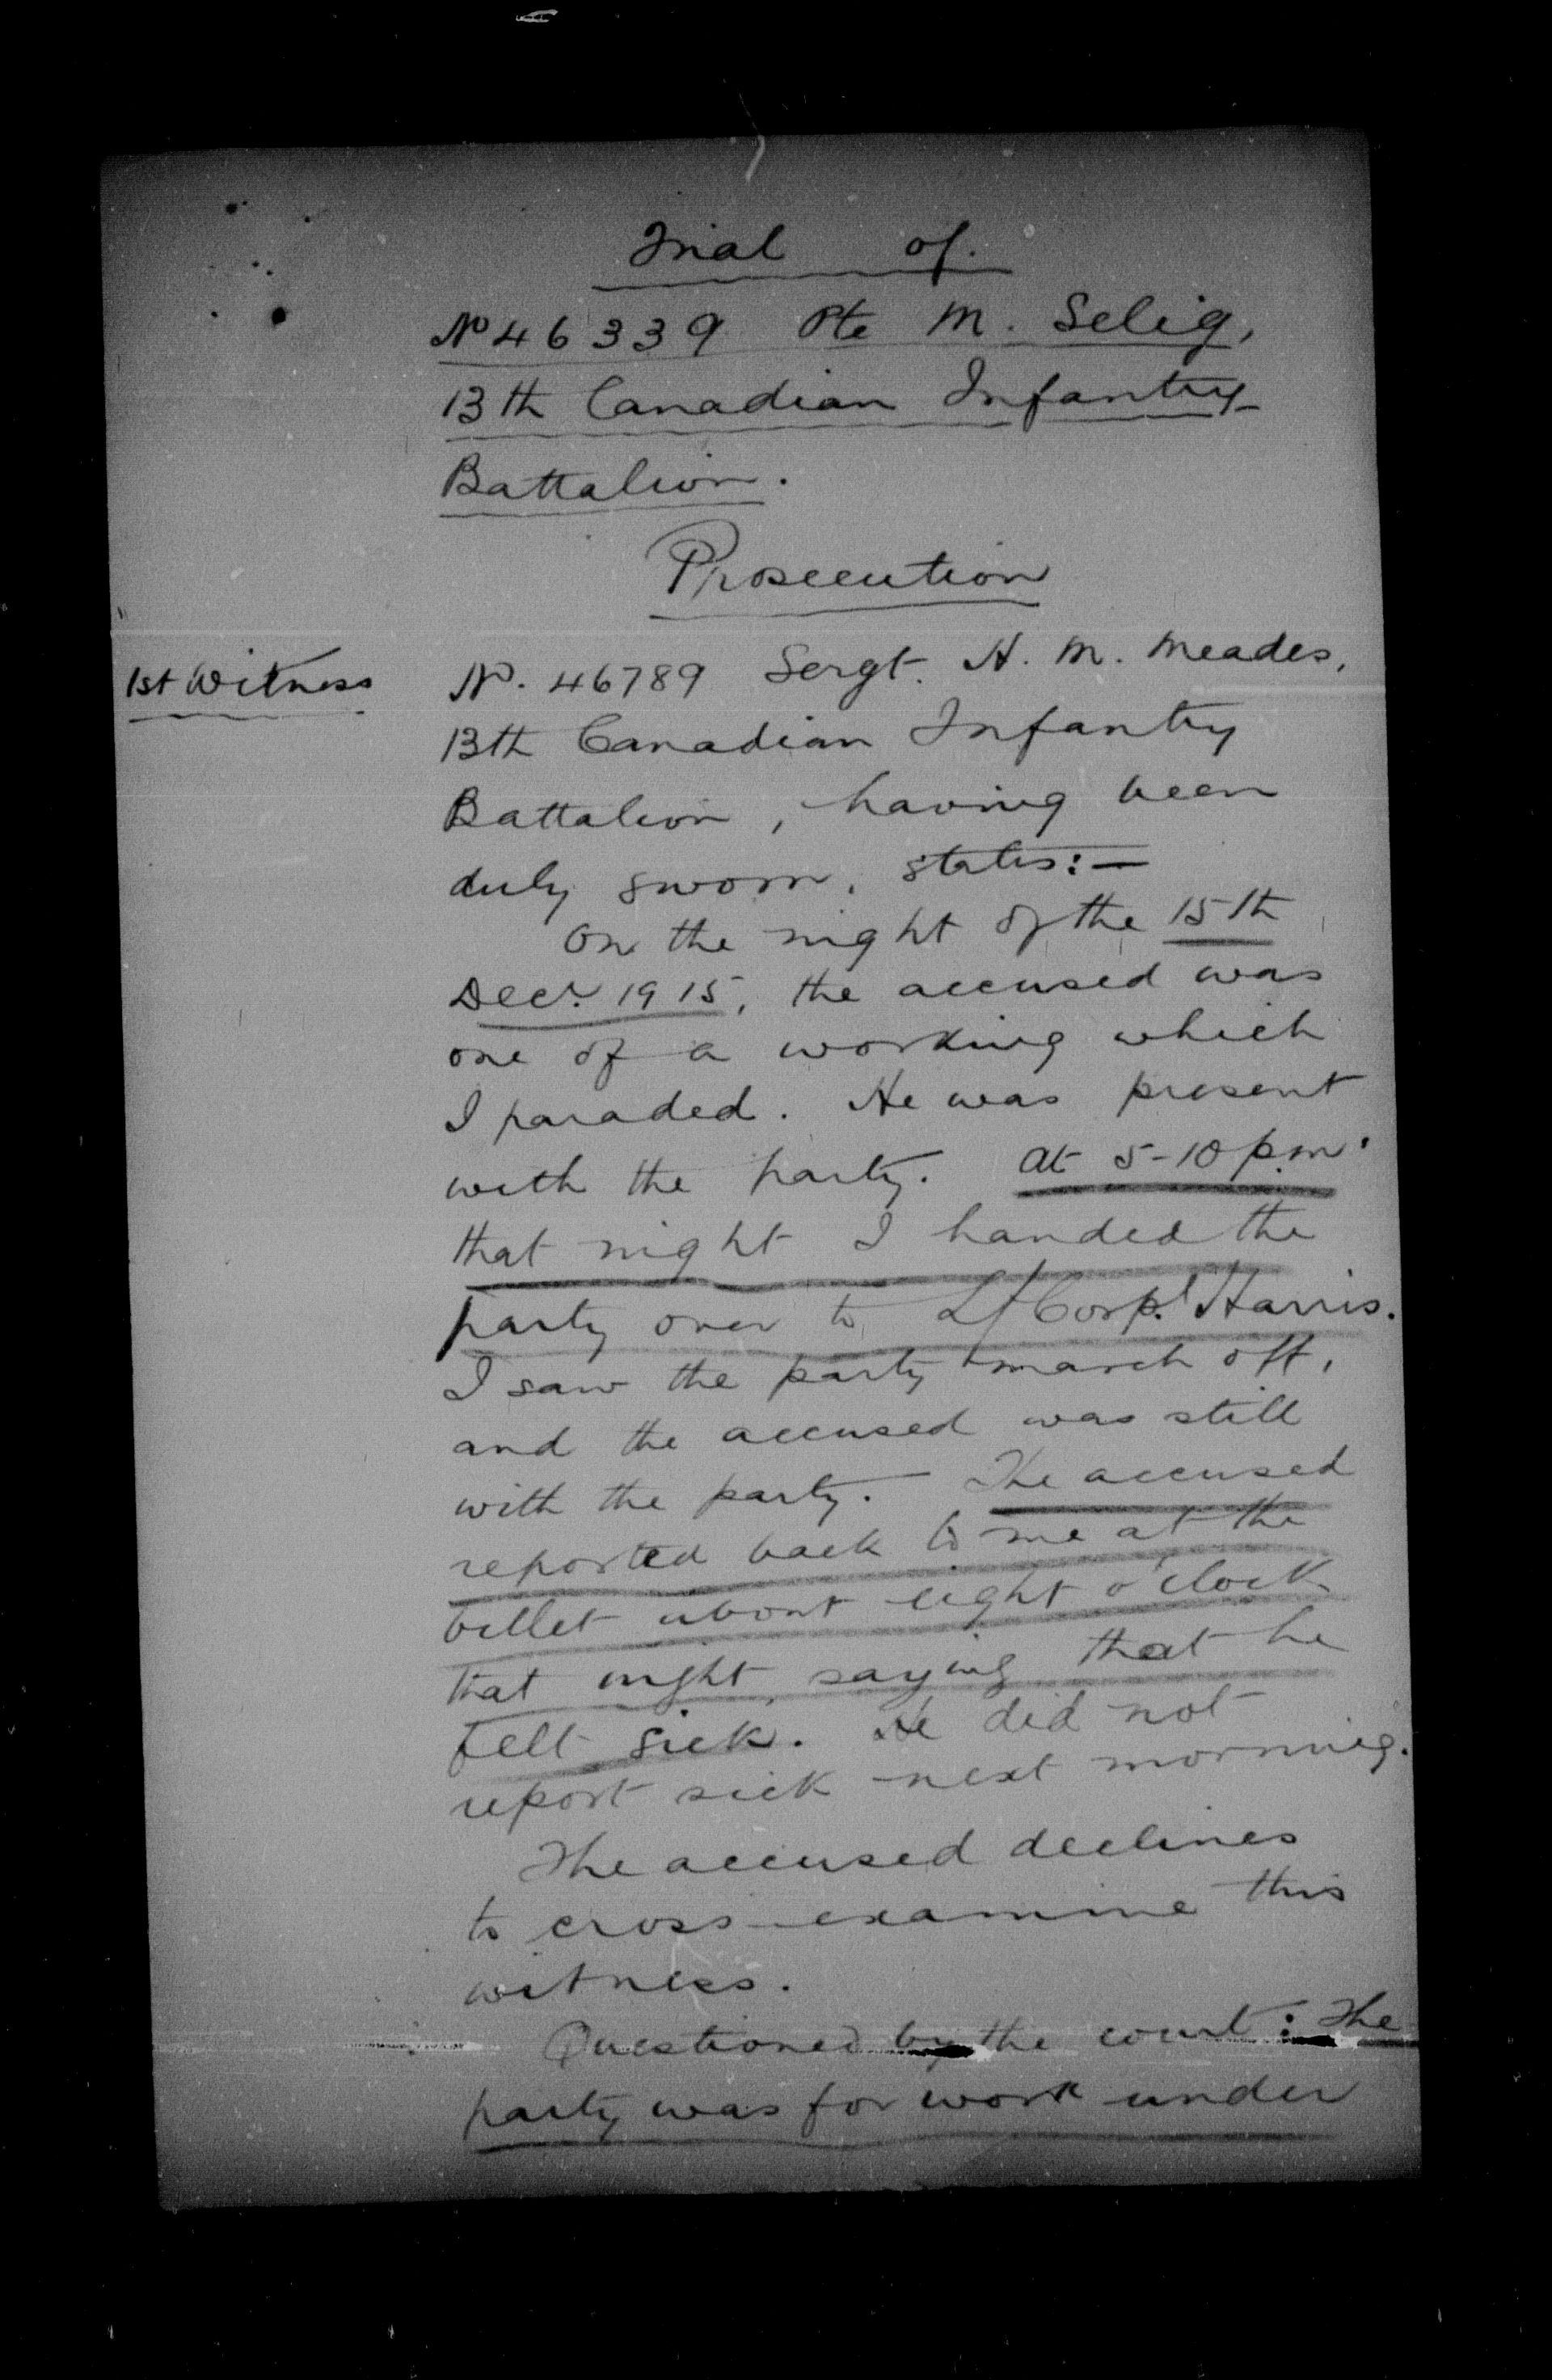 Trial of.
No 46339 Pte M. Selig,
13th Canadian Infantry
Battalion.
Prosecution
1st Witness
No. 46789 Sergt. H. M. Meades,
13th Canadian Infantry
Battalion, having been
duly sworn, states:—
On the night of the 15th
Decr. 1915, the accused was
one of a working which
I paraded. He was present
with the party. At 5-10 p.m.
that night I handed the
party over to L/Corpl Harris.
I saw the party march off,
and the accused was still
with the party. The accused
reported back to me at the
billet about eight o'clock
that night, saying that he
felt sick. He did not
report sick next morning.
The accused declines
to cross-examine this
witness.
Questioned by the court: The
party was for work under